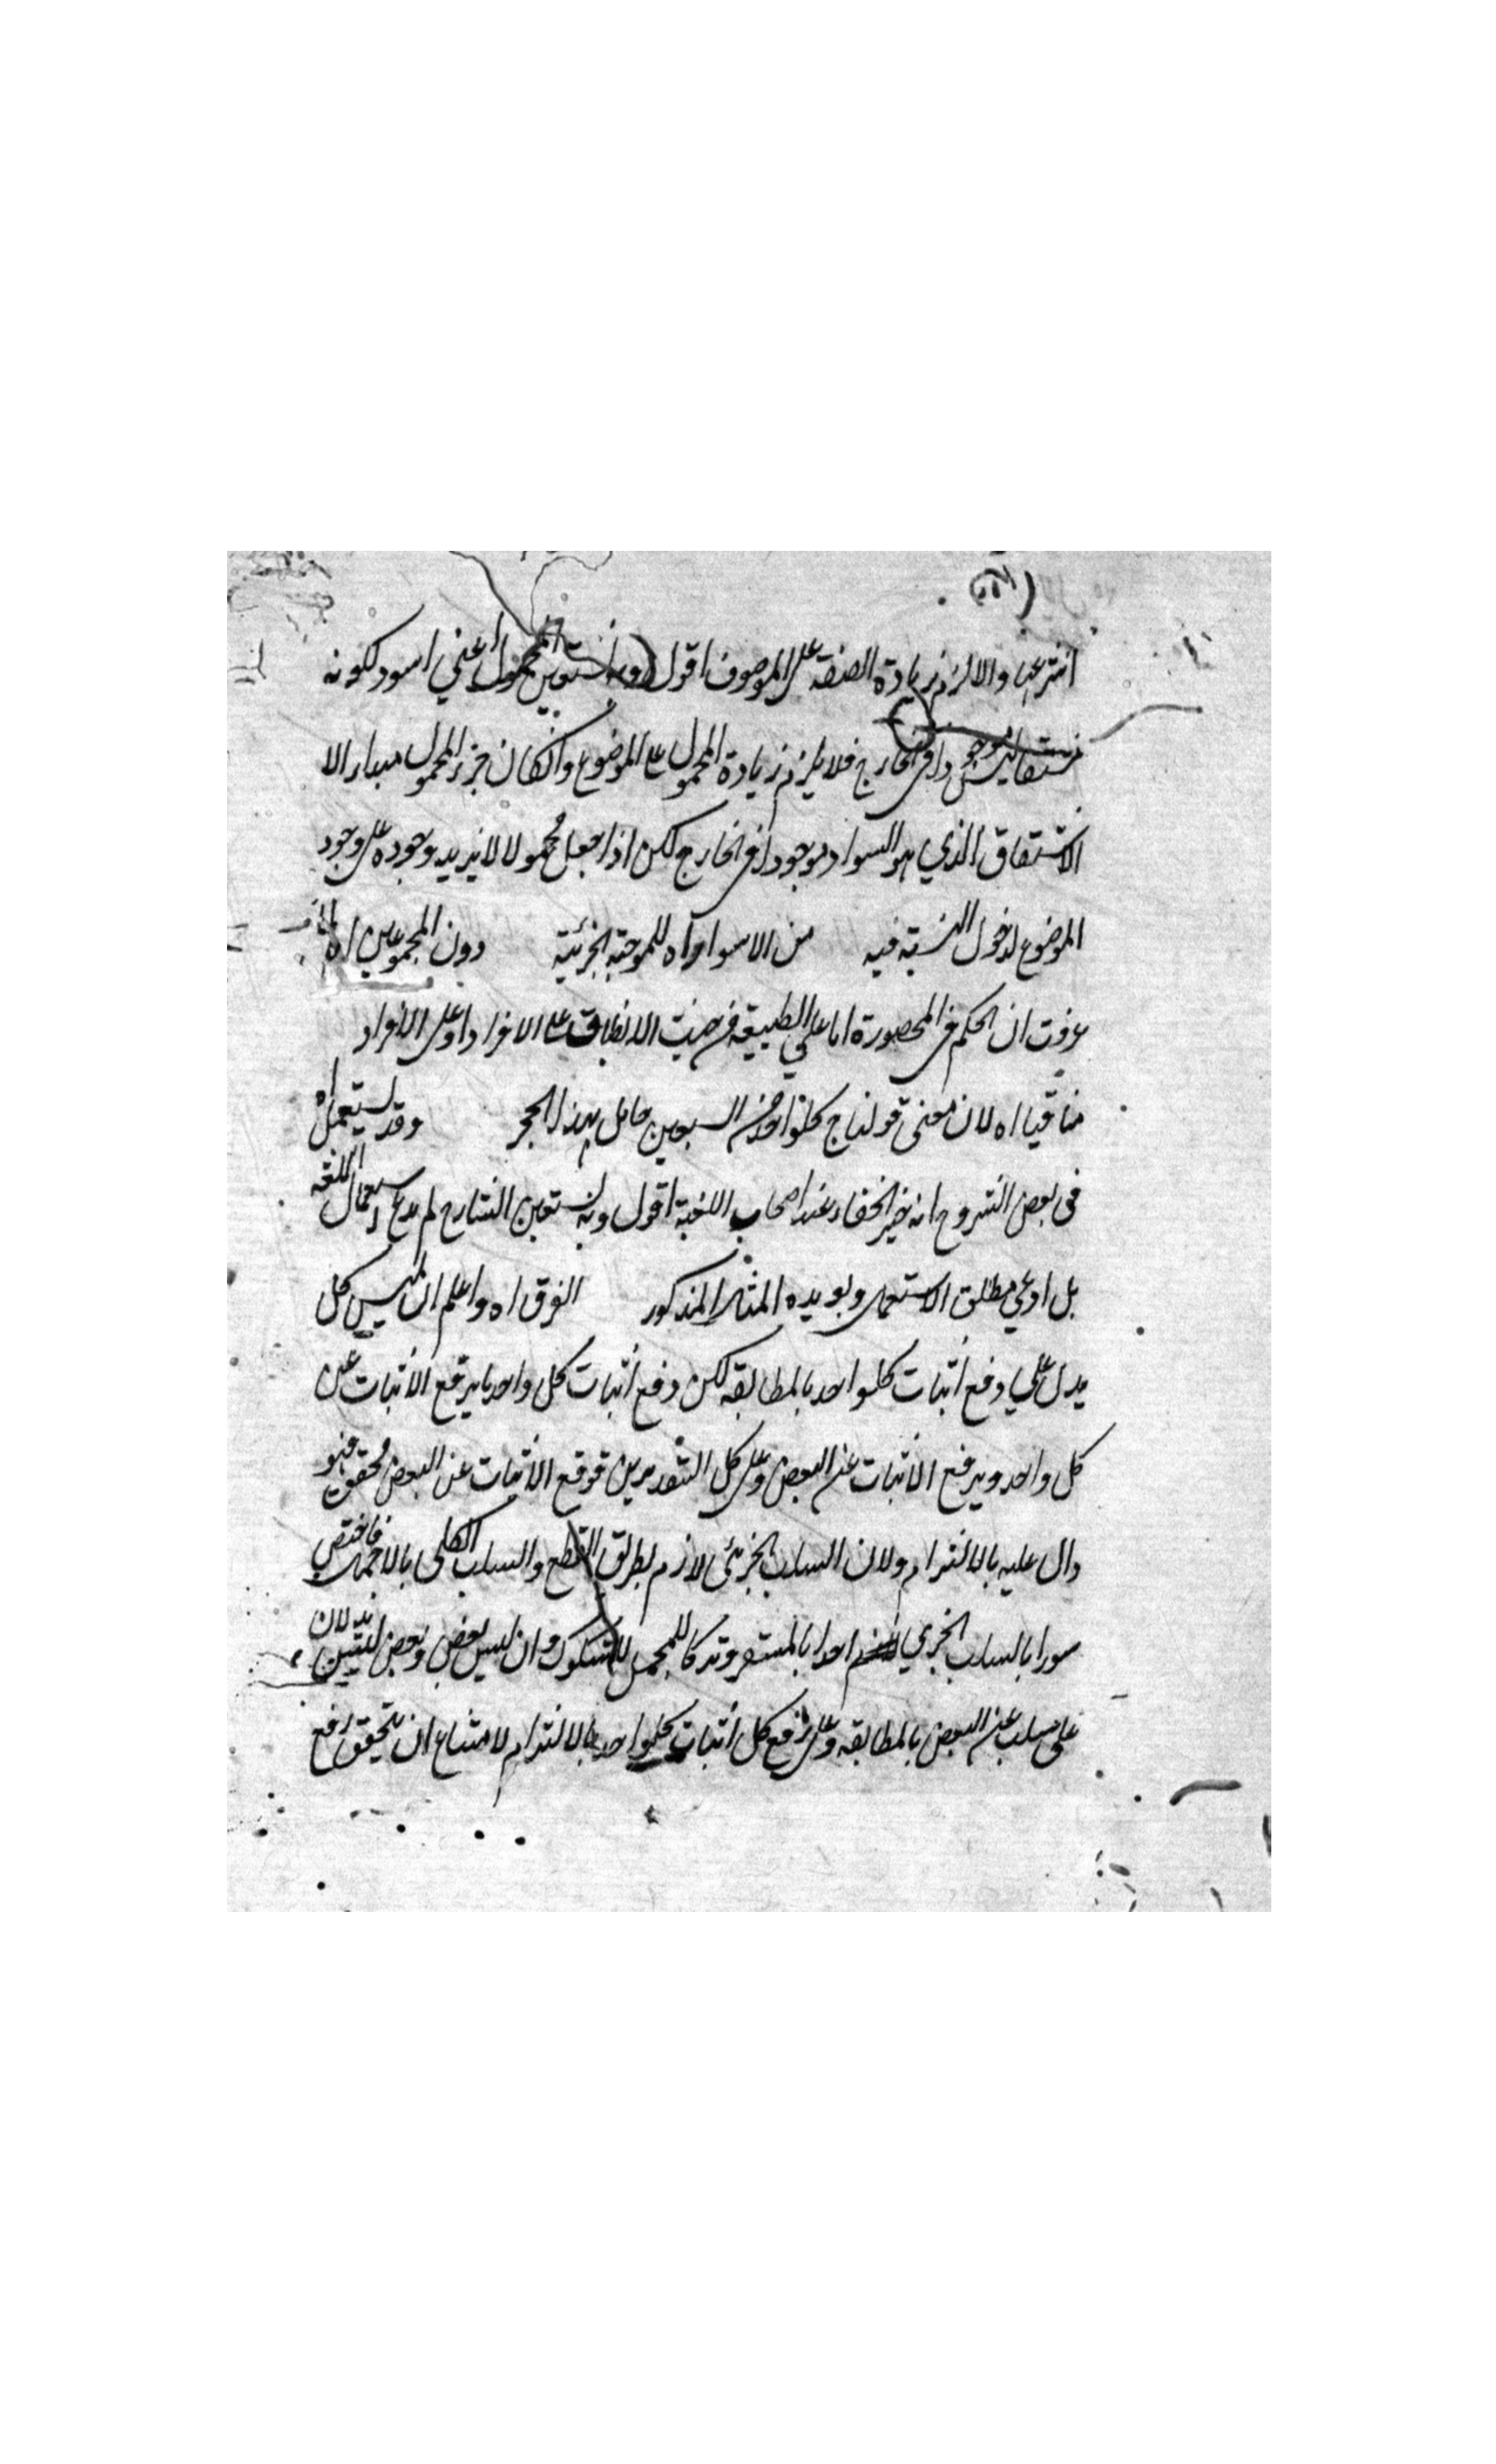 والا لزم زيادة الصفة على الموصوف اقول وبه نستعين المحمول أعني اسود لكونه
مشتقا ليس موجودا في الخارج فلا يلزم زيادة المحمول على الموضوع وانكان جزء المحمول مبداء الا
الاشتقاق الذي هو السواد موجودا في الخارج لكن اذا جعل محمولا لا يزيد وجوده على وجود
الموضوع لدخول النسبة فيه من الاسوار اه للموجبة الجزئية دون المجموعين اه لما
عرفت ان الحكم في المحصورة اما على الطبيعة من حيث الانطباق على الافراد او على الافراد
اه لان معنى قولنا ج كلواحد من السبعين حامل بهذا الحجر وقد يستعمل اه
في بعض الشروح انه خير الخفاء عند اصحاب اللغة اقول وبه نستعين الشارح لم يدع استعمال اللغة
بل ادعي مطلق الاستعمال ويويده المثال المذكور الفرق اه واعلم ان ليس كل
يدل علي رفع أثبات كلواحد بالمطابقه لكن رفع أثبات كل واحد يرفع الاثبات عن
كل واحد ويرفع الاثبات عن البعض وعلى كل التقديرين فوقع الاثبات عن البعض محقق فهو
دال عليه بالالتزام ولان السلب الجزئى لازم بطريق القطع والسلب الكلى بالاحتمال فاختص
سورا بالسلب الجزي اخدا بالمتعين وتركا للمحمل للشكوك وان ليس بعض وبعض ليس يدلان
على سلب عن البعض بالمطابقه وعلى رفع كل أثبات كلواحد بالالتزام لامتناع ان يتحقق رفع